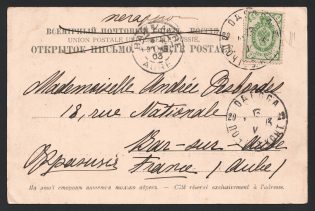 ВСЕМІРНЫЙ ПОЧТОВЫЙ СОЮЗЪ. РОССІЯ.
UNION POSTALE UNIVERSELLE. RUSSIE.
ОТКРЫТОЕ ПИСЬМО. CARTE POSTALE.
Mademoiselle Andrée
18, rue Nationale
Bar-sur-Aube
France (Aube)
На этой сторонѣ пишется только адресъ. — Côté réservé exclusivement à l'adresse.